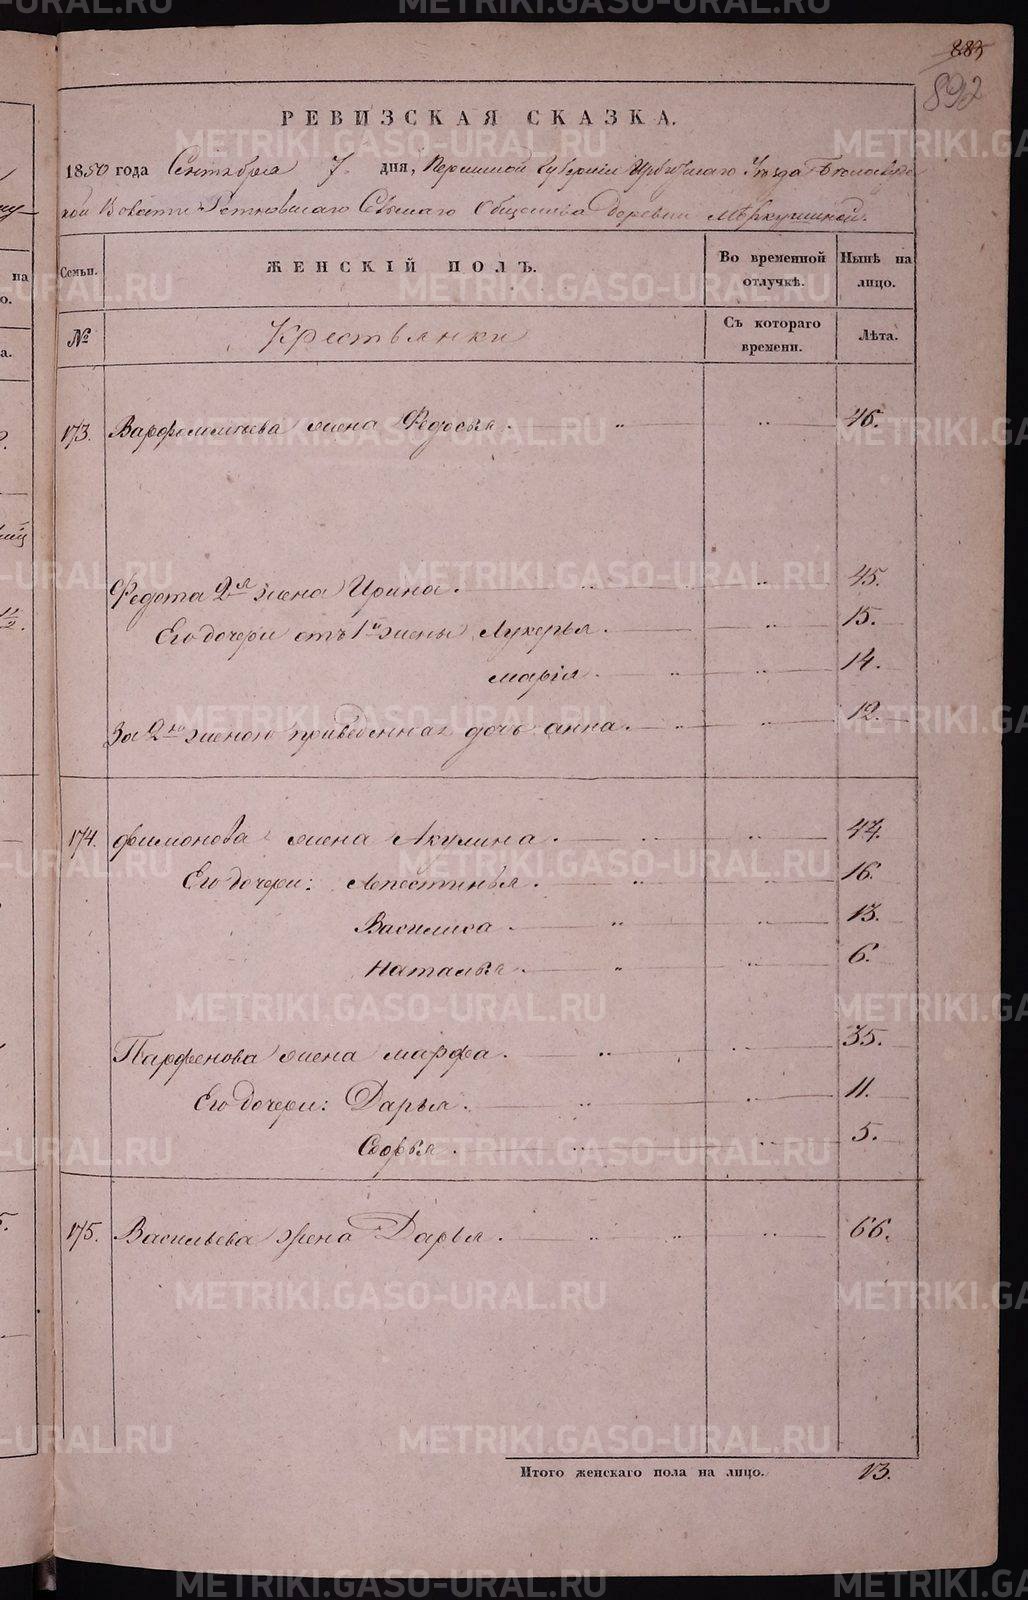 883
892
РЕВИЗСКАЯ СКАЗКА.
1850 года Сентября 7 дня, Пермской Губернии Ирбитскаго Уезда Белослудс
кой Волости Ретневскаго Сельскаго Общества Деревни Меркушиной.
Семьи. ЖЕНСКІЙ ПОЛЪ. Во временной отлучкѣ. Нынѣ на лицо.
№ Крестьянки Съ котораго времени. Лѣта.
173. Варфоломеева жена Федосья. 46.
Федота 2я жена Ирина. 45.
Его дочери отъ 1й жены Лукерья. 15.
марія. 14.
За 2ю женою приведенная дочь анна. 12.
174. филмонова жена Акулина. 47.
Его дочери: Апестинья. 16.
Василиса. 13.
Наталья. 6.
Парфенова жена марфа. 35.
Его дочери: Дарья. 11.
Софья. 5.
175. Васильева жена Дарья. 66.
Итого женскаго пола на лицо. 13.
METRIKI.GASO-URAL.RU